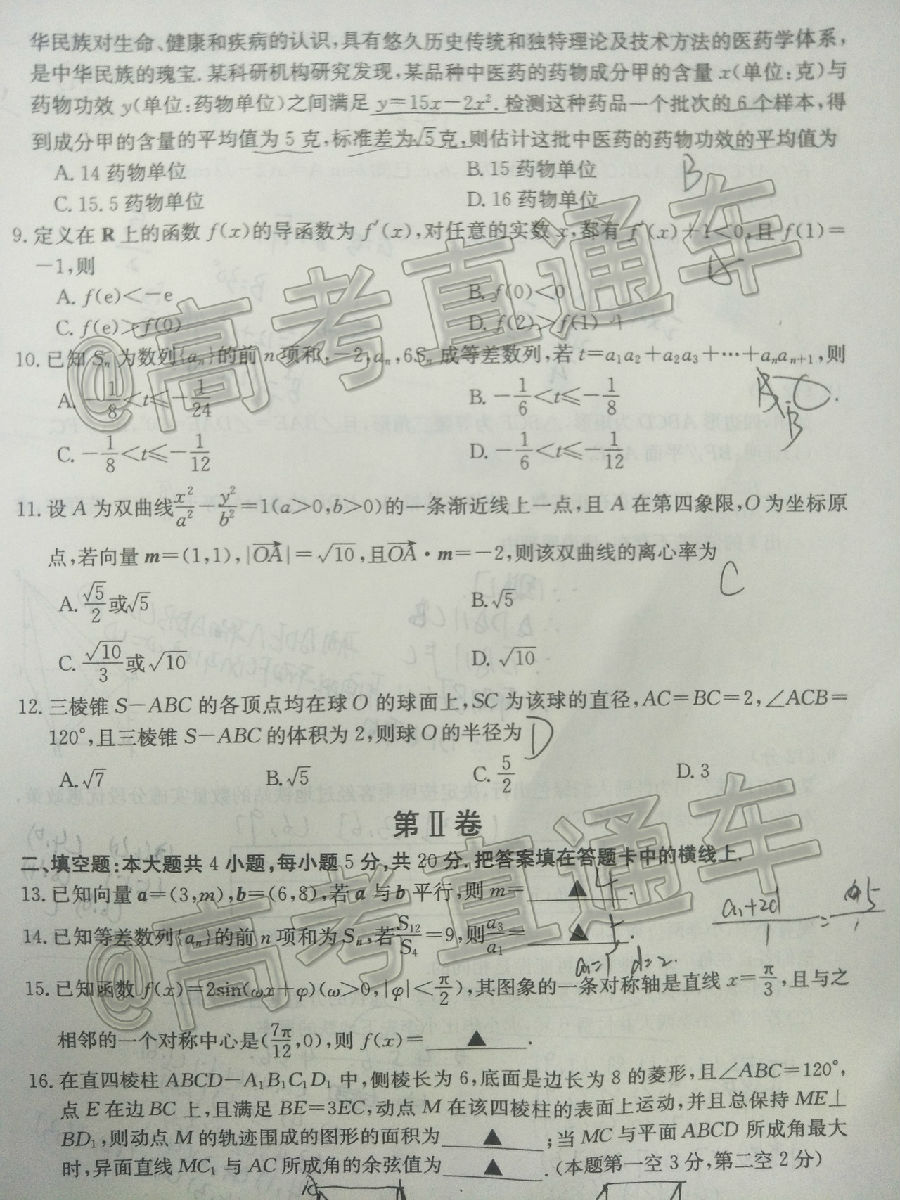 华民族对生命、健康和疾病的认识,具有悠久历史传统和独特理论及技术方法的医药学体系,
是中华民族的瑰宝.某科研机构研究发现,某品种中医药的药物成分甲的含量 x(单位:克)与
药物功效 y(单位:药物单位)之间满足 y=15x-2x².检测这种药品一个批次的 6 个样本,得
到成分甲的含量的平均值为 5 克,标准差为√5克,则估计这批中医药的药物功效的平均值为
A. 14 药物单位 B. 15 药物单位 B
C. 15.5 药物单位 D. 16 药物单位
9. 定义在 R 上的函数 f(x)的导函数为 f′(x),对任意的实数 x,都有 f′(x)+1<0,且 f(1)=
-1,则
A. f(e)<-e B. f(0)<0
C. f(e)>f(0) D. f(2)>f(1)
10. 已知 Sₙ 为数列{aₙ}的前 n 项和,-2,aₙ,6Sₙ 成等差数列,若 t=a₁a₂+a₂a₃+⋯+aₙaₙ₊₁,则
A. -1/8<t≤-1/24 B. -1/6<t≤-1/8 B
C. -1/8<t≤-1/12 D. -1/6<t≤-1/12
11. 设 A 为双曲线x²/a²-y²/b²=1(a>0,b>0)的一条渐近线上一点,且 A 在第四象限,O 为坐标原
点,若向量 m=(1,1),|OA→|=√10,且OA→·m=-2,则该双曲线的离心率为 C
A. √5/2或√5 B. √5
C. √10/3或√10 D. √10
12. 三棱锥 S-ABC 的各顶点均在球 O 的球面上,SC 为该球的直径,AC=BC=2,∠ACB=
120°,且三棱锥 S-ABC 的体积为 2,则球 O 的半径为 D
A. √7 B. √5 C. 5/2 D. 3
第Ⅱ卷
二、填空题:本大题共 4 小题,每小题 5 分,共 20 分.把答案填在答题卡中的横线上.
13. 已知向量 a=(3,m),b=(6,8),若 a 与 b 平行,则 m=▲ 4.
14. 已知等差数列{aₙ}的前 n 项和为 Sₙ,若S₁₂/S₄=9,则a₃/a₁=▲ 5.
a₁=1 d=2
15. 已知函数 f(x)=2sin(ωx+φ)(ω>0,|φ|<π/2),其图象的一条对称轴是直线 x=π/3,且与之
相邻的一个对称中心是(7π/12,0),则 f(x)=▲.
16. 在直四棱柱 ABCD-A₁B₁C₁D₁ 中,侧棱长为 6,底面是边长为 8 的菱形,且∠ABC=120°,
点 E 在边 BC 上,且满足 BE=3EC,动点 M 在该四棱柱的表面上运动,并且总保持 ME⊥
BD₁,则动点 M 的轨迹围成的图形的面积为▲;当 MC 与平面 ABCD 所成角最大
时,异面直线 MC₁ 与 AC 所成角的余弦值为▲.(本题第一空 3 分,第二空 2 分)
@高考直通车
@高考直通车